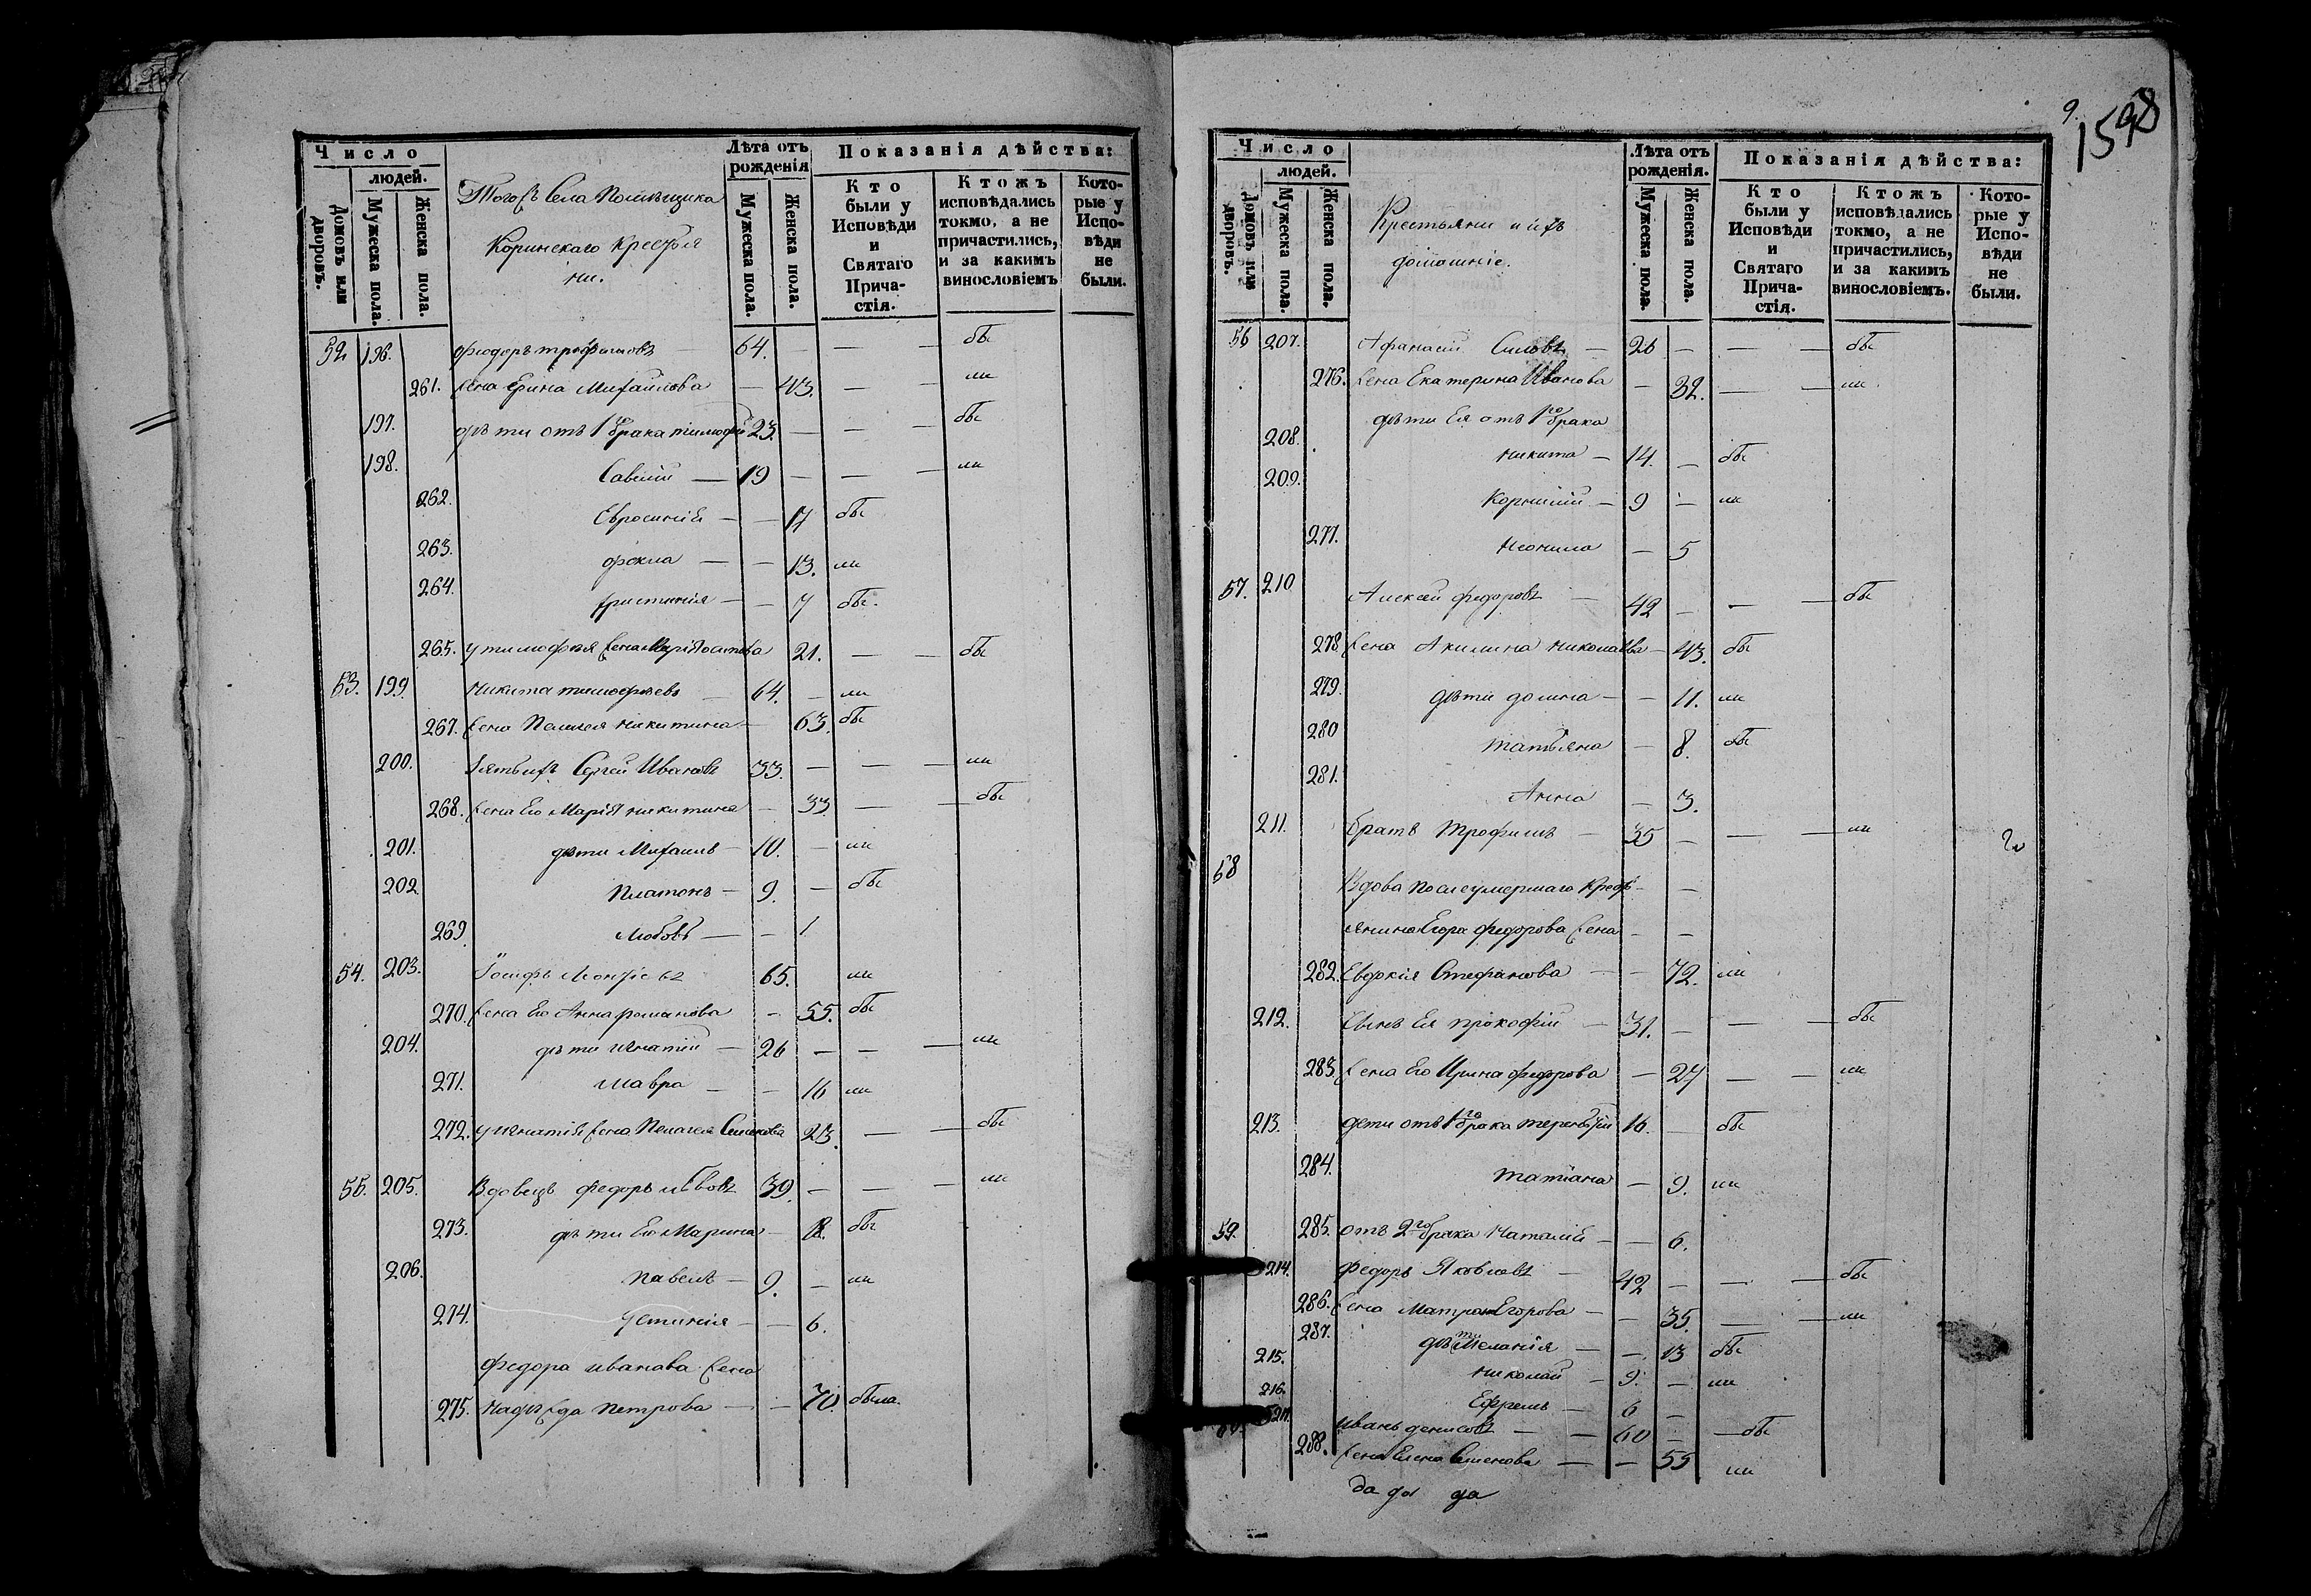 Число
людей.
Домовъ или дворовъ.
Мужеска пола.
Женска пола.
Тогожъ Села Помѣщика
Коринскаго Крестья
ни.
Лѣта отъ рожденія
Мужеска пола.
Женска пола.
Показанія дѣйства:
Кто были у Исповѣди и Святаго Прича-стія.
Ктожъ исповѣдались токмо, а не причастились, и за какимъ винословіемъ
Кото-рые у Испо-вѣди не были.
52 196. Фюдоръ трофимовъ — 64. — — — бы
261. Жена Ерина Михайлова — 43. — — ли
197. дѣти отъ 1 брака тимофей 23. — — — бы
198. Савелий — 19 — — — ли
262. Евросиния — — 17 бы
263. фекла — — 13. ли
264. христиния — — 7 бы.
265. у тимофея жена Мария осипова 21. — — бы
53. 199. Никита тимофѣевъ — 64. — ли
267. Жена Пелагея никитина — 63. бы
200. Зять ихъ Сергей Ивановъ 33. — — — ли
268. жена Его Мария никитина — 33 — — бы
201. дѣти Михаилъ — 10. — ли
202 Платонъ — 9. — бы
269. Любовь — — 1
54. 203. Іосифъ Леонтіевъ 65. ли
270. жена Его Анна романова — 55. бы
204. дѣти игнатий — 26 — — — ли
271. Мавра — — 16 ли
272. у игнатія жена Пелагея Семенова 23. — — бы
55. 205. Вдовецъ федоръ львовъ 39. — — — ли
273. дѣти Его Марина — 12. бы
206. павелъ — 9. — ли
274. устиния — — 6.
федора иванова жена
275. надежда петрова — — 70. была.
9.
1598
Число
людей.
Домовъ или дворовъ.
Мужеска пола.
Женска пола.
Крестьяни и ихъ
домашніе.
Лѣта отъ рожденія.
Мужеска пола.
Женска пола.
Показанія дѣйства:
Кто были у Исповѣди и Святаго Прича-стія.
Ктожъ исповѣдались токмо, а не причастились, и за какимъ винословіемъ.
Кото-рые у Испо-вѣди не были.
56 207. Афанасий Силовъ — 26 — — — бы
276. жена Екатерина Иванова — 32. — — ли
дѣти Ея отъ 1го брака
208. никита — 14. — бы
209. Корнилий — 9 — ли
277. неонила — 5
57. 210 Алексей федоровъ — 42 — — — бы
278 жена Акилина николаева — 43. бы
279. дѣти домна — — 11. ли
280 татьяна — 8. бы
281. Анна — 3.
211. братъ трофимъ — 35 — — — ли
58 Вдова после умершаго Кресть — —
янина Егора федорова жена — —
282. Евдокия Стефанова — — 72. ли
212. Сынъ Ея прокофий — 31. — — — бы
283. жена Его Ирина федорова — 27 — — ли
213. дети отъ 1го брака терентий 16. — бы
284. татіана — 9. ли
59. 285. отъ 2го брака Наталия — — 6.
214. федоръ Яковлевъ — 42 — — — бы
286. жена матрона Егорова — — 35. — — ли
287. дѣти Мелания — — 13 бы
215. николай — 9. — ли
216. Ефремъ — 6 —
217. иванъ денисовъ — — 60 — — бы
288. жена Елена Семенова — — 55 ли